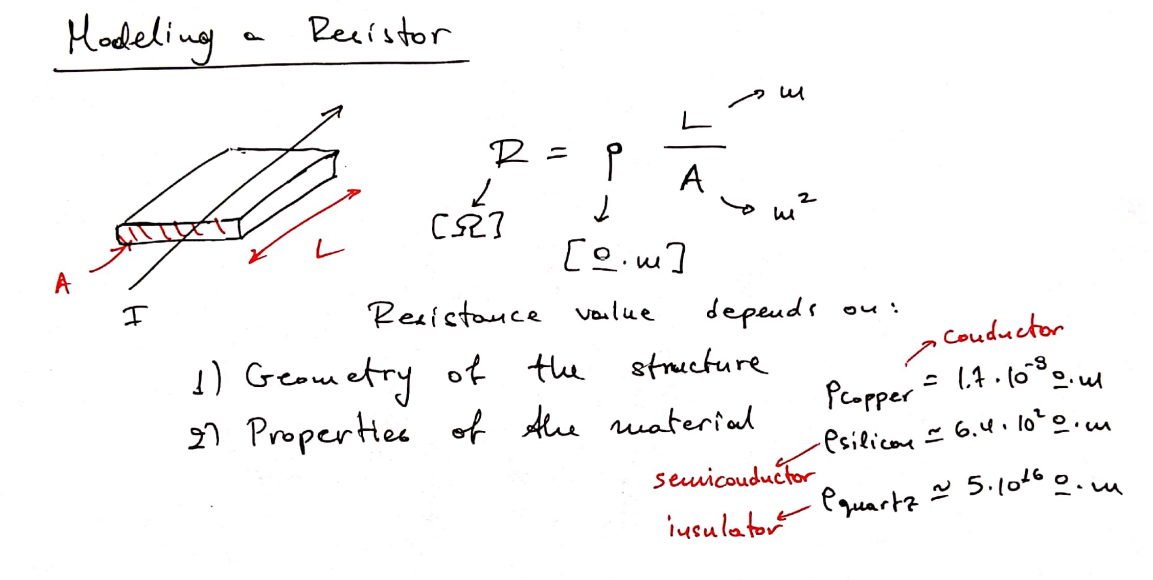 Modeling a Resistor
R = ρ L/A
m
m²
[Ω]
[Ω.m]
A
L
I
Resistance value depends on:
1) Geometry of the structure
2) Properties of the material
conductor
ρcopper = 1.7 . 10⁻⁸ Ω.m
ρsilicon ≃ 6.4 . 10² Ω.m
semiconductor
ρquartz ≃ 5.10¹⁶ Ω.m
insulator